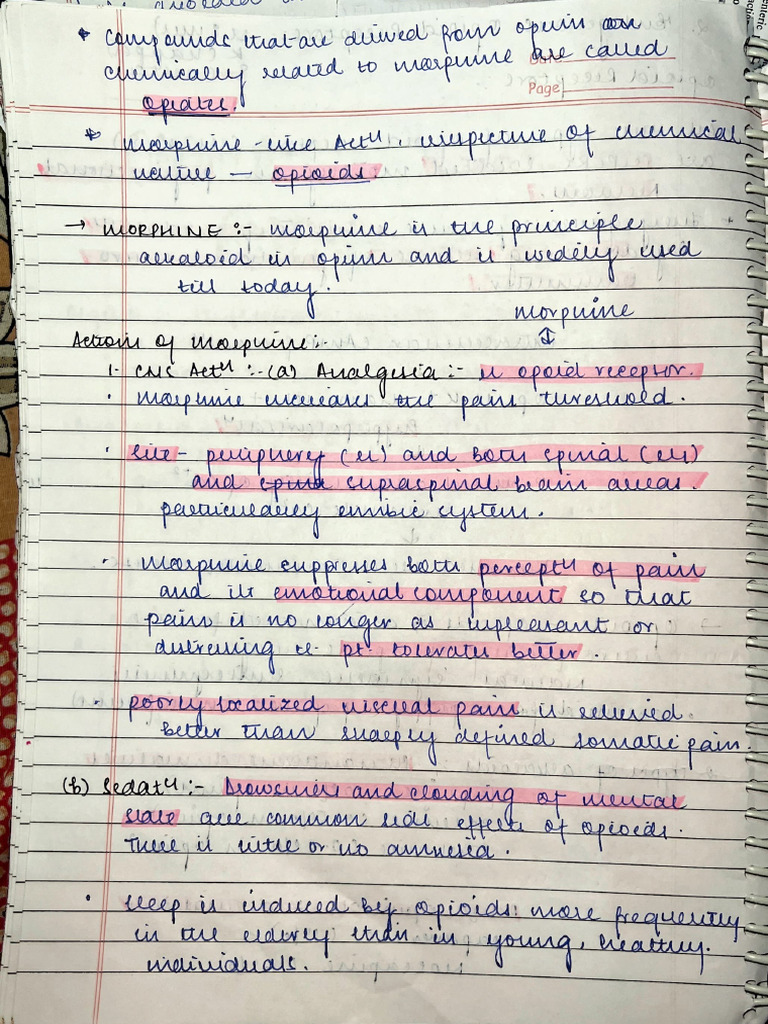 * compounds that are derived from opium or
chemically related to morphine are called
Page
opiates.
* morphine-like Actⁿ, irrespective of chemical
native — opioids.
→ MORPHINE :- morphine is the principle
alkaloid in opium and is widely used
till today.
morphine
↕
Actions of morphine:-
1. CNS Actⁿ :- (a) Analgesia :- μ opoid receptor.
• morphine increases the pain threshold.
• site - periphery (μ) and both spinal (μ)
and supraspinal brain areas.
particularly limbic system.
• morphine suppresses both perceptⁿ of pain
and its emotional component so that
pain is no longer as unpleasant or
distressing i.e. pt. tolerates better.
• poorly localized visceral pain is relieved
better than sharply defined somatic pain.
(b) Sedatⁿ :- Drowsiness and clouding of mental
state are common side effects of opioids.
There is little or no amnesia.
• sleep is induced by opioids more frequently
in the elderly than in young, healthy
individuals.